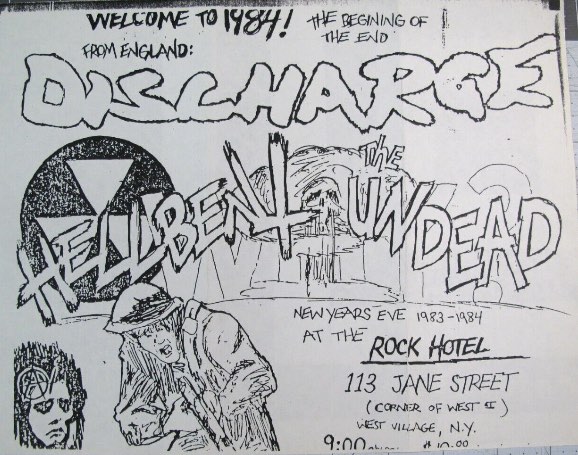 WELCOME TO 1984!
THE BEGINING OF
THE END
FROM ENGLAND:
DISCHARGE
HELLBENT
THE
UNDEAD
NEW YEARS EVE 1983-1984
AT THE
ROCK HOTEL
113 JANE STREET
(CORNER OF WEST ST)
WEST VILLAGE, N.Y.
9:00
$10.00